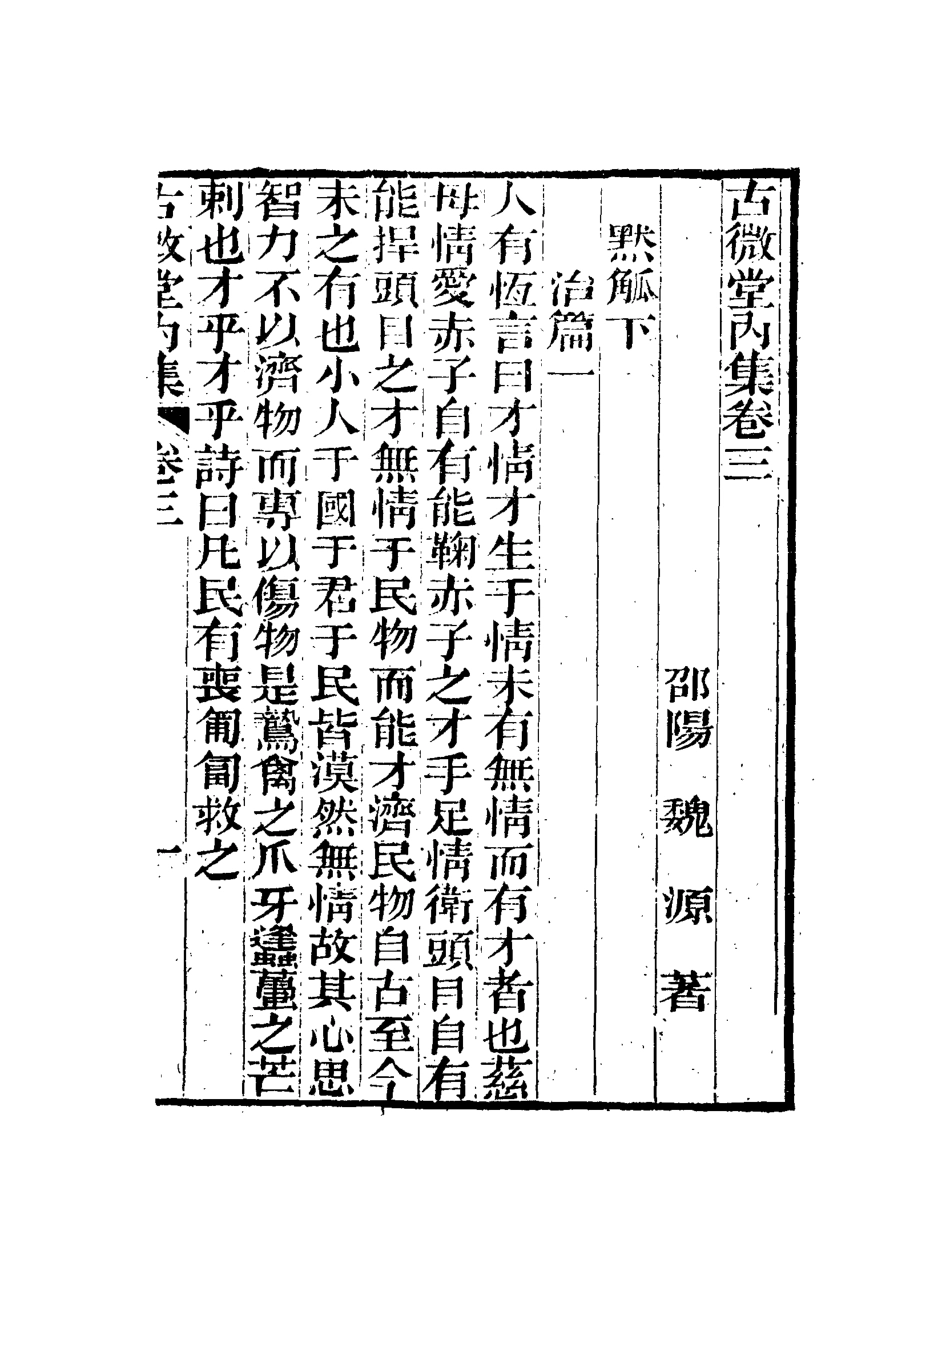 古微堂內集卷三
邵陽 魏 源 著
默觚下
治篇一
人有恆言曰才情才生于情未有無情而有才者也慈
母情愛赤子自有能鞠赤子之才手足情衛頭目自有
能捍頭目之才無情于民物而能才濟民物自古至今
未之有也小人于國于君于民皆漠然無情故其心思
智力不以濟物而專以傷物是鷙禽之爪牙蠭蠆之芒
刺也才乎才乎詩曰凡民有喪匍匐救之
古微堂內集 卷三 一